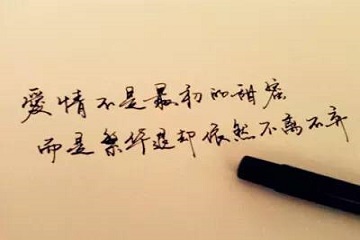 愛情不是最初的甜蜜
而是繁华退却依然不离不弃